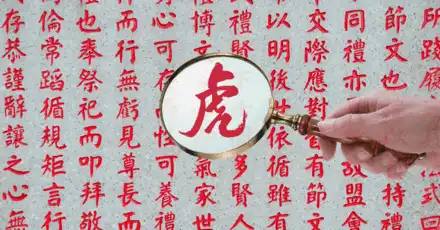 節文也
持禮
同禮亦
故盟會
交際應對
有節文
以明後世
依循雖有
禮賢
多賢人
博文
氣家世
心可存
性可養禮
而行無虧見尊長而
也奉祭祀而叩拜敬
倫常蹈循規矩言行
存恭謹辭讓之心無
虎